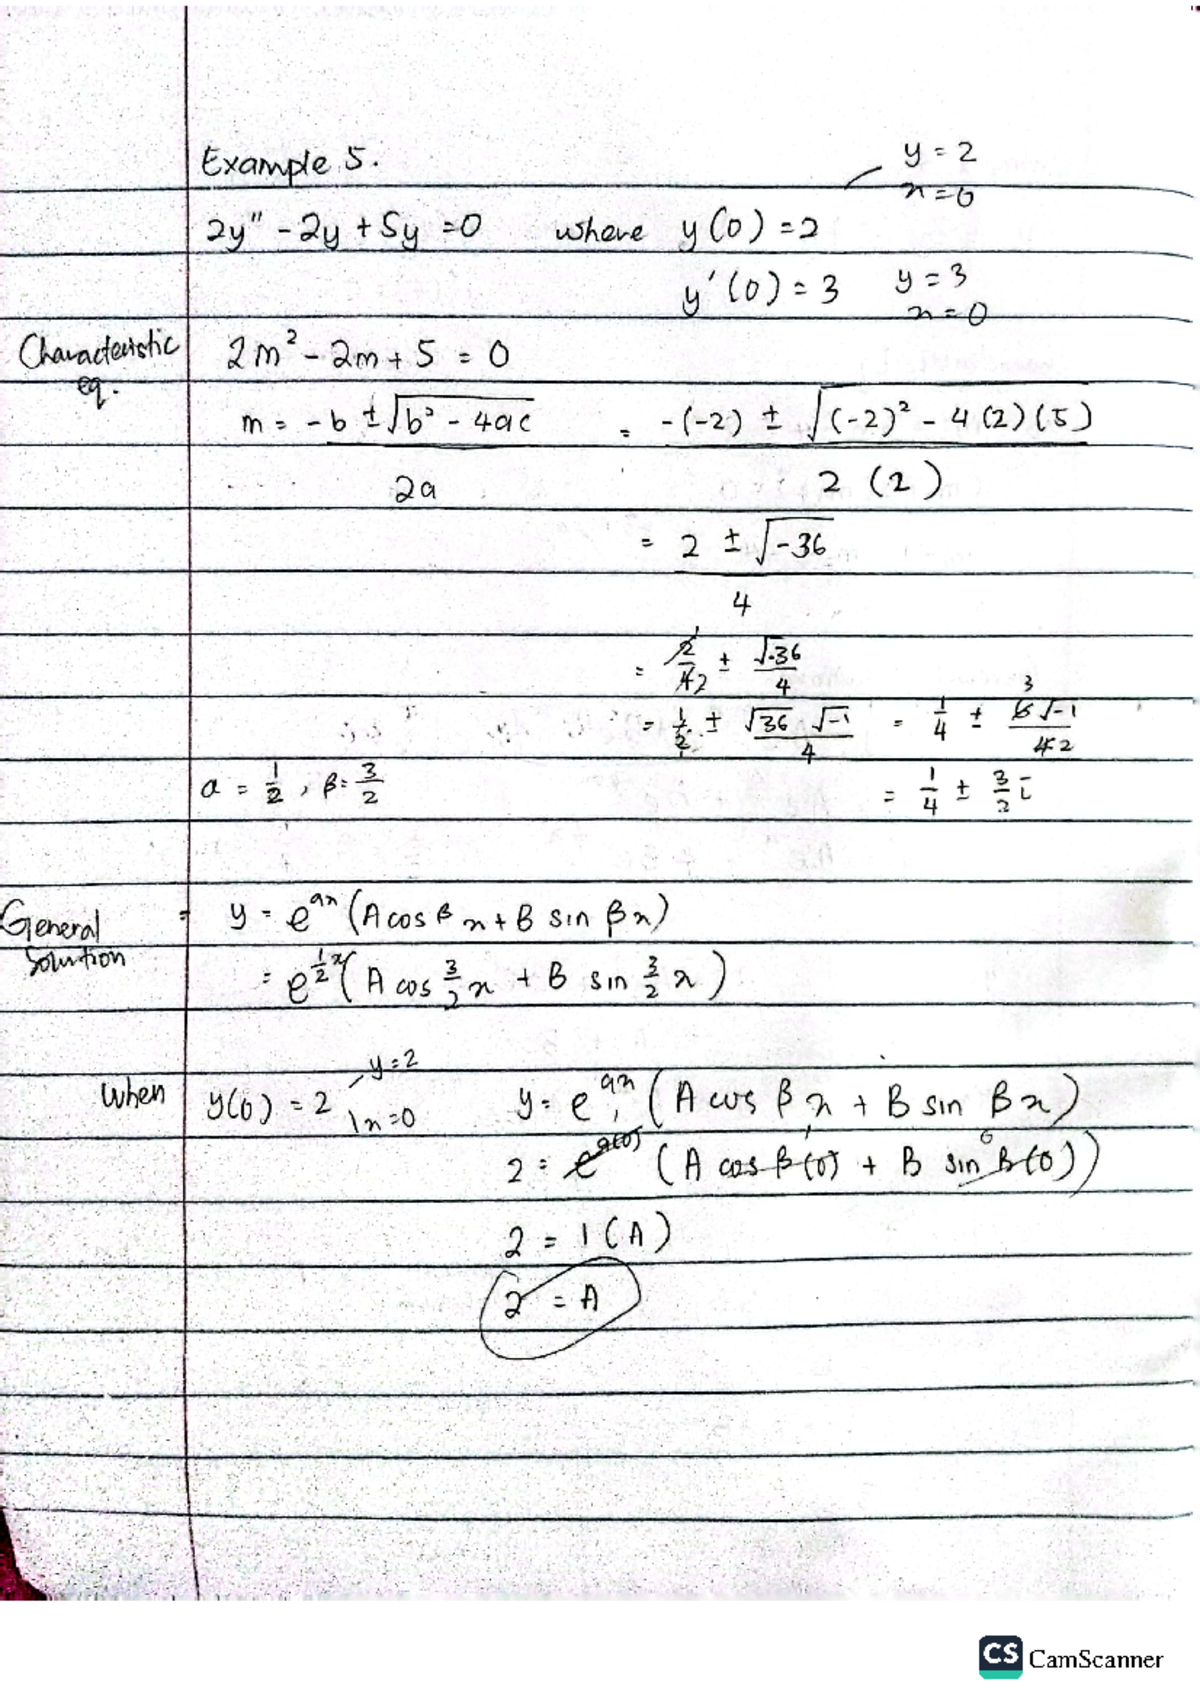 Example 5.
y = 2
x = 0
2y'' - 2y + 5y = 0 where y(0) = 2
y'(0) = 3 y = 3
x = 0
Characteristic eq. 2m² - 2m + 5 = 0
m = -b ± √(b² - 4ac) / 2a = -(-2) ± √((-2)² - 4(2)(5)) / 2(2)
= 2 ± √-36 / 4
= 2/4 2 ± √-36 / 4
= 1/2 ± √36 √-1 / 4 = 1/4 ± 6√-1 / 4 3 2
a = 1/2 , β = 3/2 = 1/4 ± 3/2 i
General Solution = y = e^ax (A cos βx + B sin βx)
= e^1/2x (A cos 3/2 x + B sin 3/2 x)
When y(0) = 2 y=2 x=0 y = e^ax (A cos βx + B sin βx)
2 = e^a(0) (A cos β(0) + B sin β(0)) 1 1 0
2 = 1(A)
2 = A
CS CamScanner